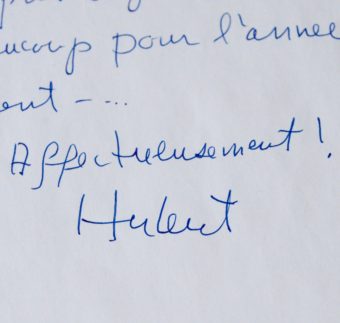 aucoup pour l'année
ent - ...
Affectueusement !
Hubert